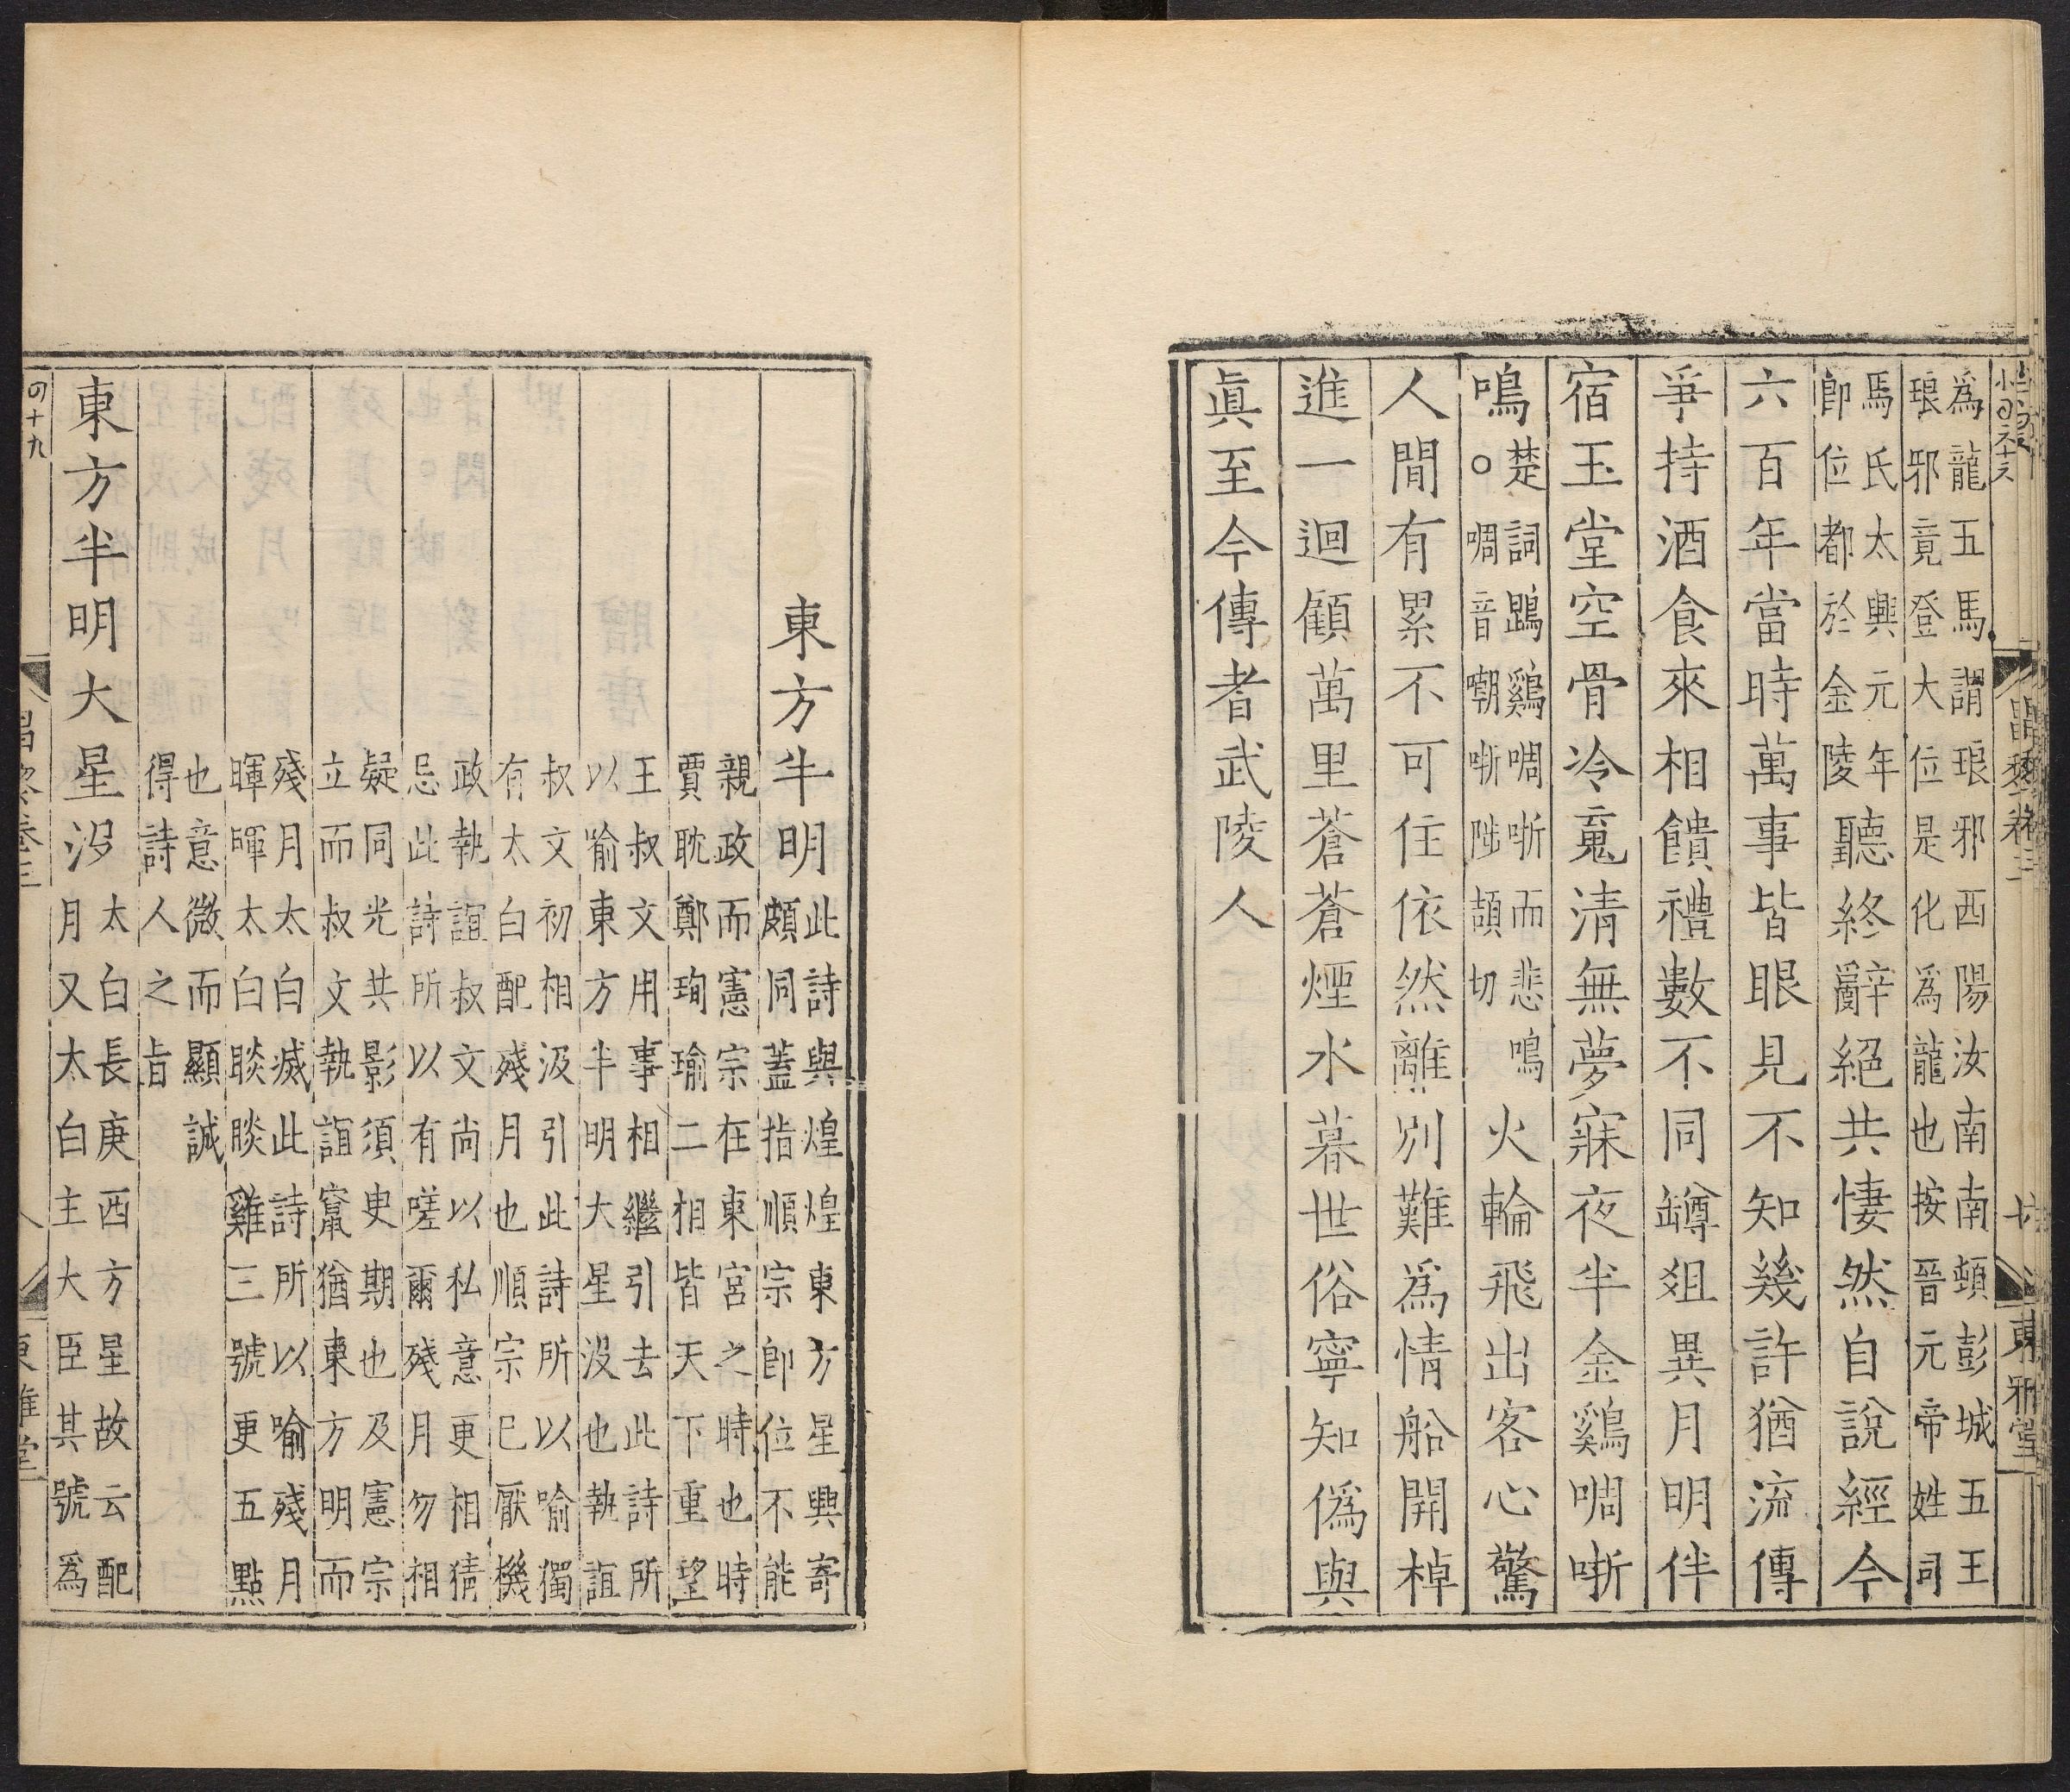 昌黎卷三
東雅堂
為龍五馬謂琅邪西陽汝南南頓彭城五王
琅邪竟登大位是化為龍也按晉元帝姓司
馬氏太興元年
即位都於金陵
聽終辭絕共悽然自說經今
六百年當時萬事皆眼見不知幾許猶流傳
爭持酒食來相饋禮數不同罇俎異月明伴
宿玉堂空骨冷䰟清無夢寐夜半金鷄啁哳
鳴
楚詞鵾鷄啁哳而悲鳴
○啁音嘲哳陟頡切
火輪飛出客心驚
人間有累不可住依然離別難為情船開棹
進一迴顧萬里蒼蒼煙水暮世俗寧知偽與
真至今傳者武陵人
東方半明
此詩與煌煌東方星興寄
頗同蓋指順宗即位不能
親政而憲宗在東宮之時也時
賈耽鄭珣瑜二相皆天下重望
王叔文用事相繼引去此詩所
以喻東方半明大星没也執誼
叔文初相汲引此詩所以喻獨
有太白配殘月也順宗已厭機
政執誼叔文尚以私意更相猜
忌此詩所以有嗟爾殘月勿相
疑同光共影須臾期也及憲宗
立而叔文執誼竄猶東方明而
殘月太白滅此詩所以喻殘月
暉暉太白睒睒雞三號更五點
也意微而顯誠
得詩人之旨
東方半明大星没
太白長庚西方星故云配
月又太白主大臣其號為
四十九
昌黎卷三
東雅堂